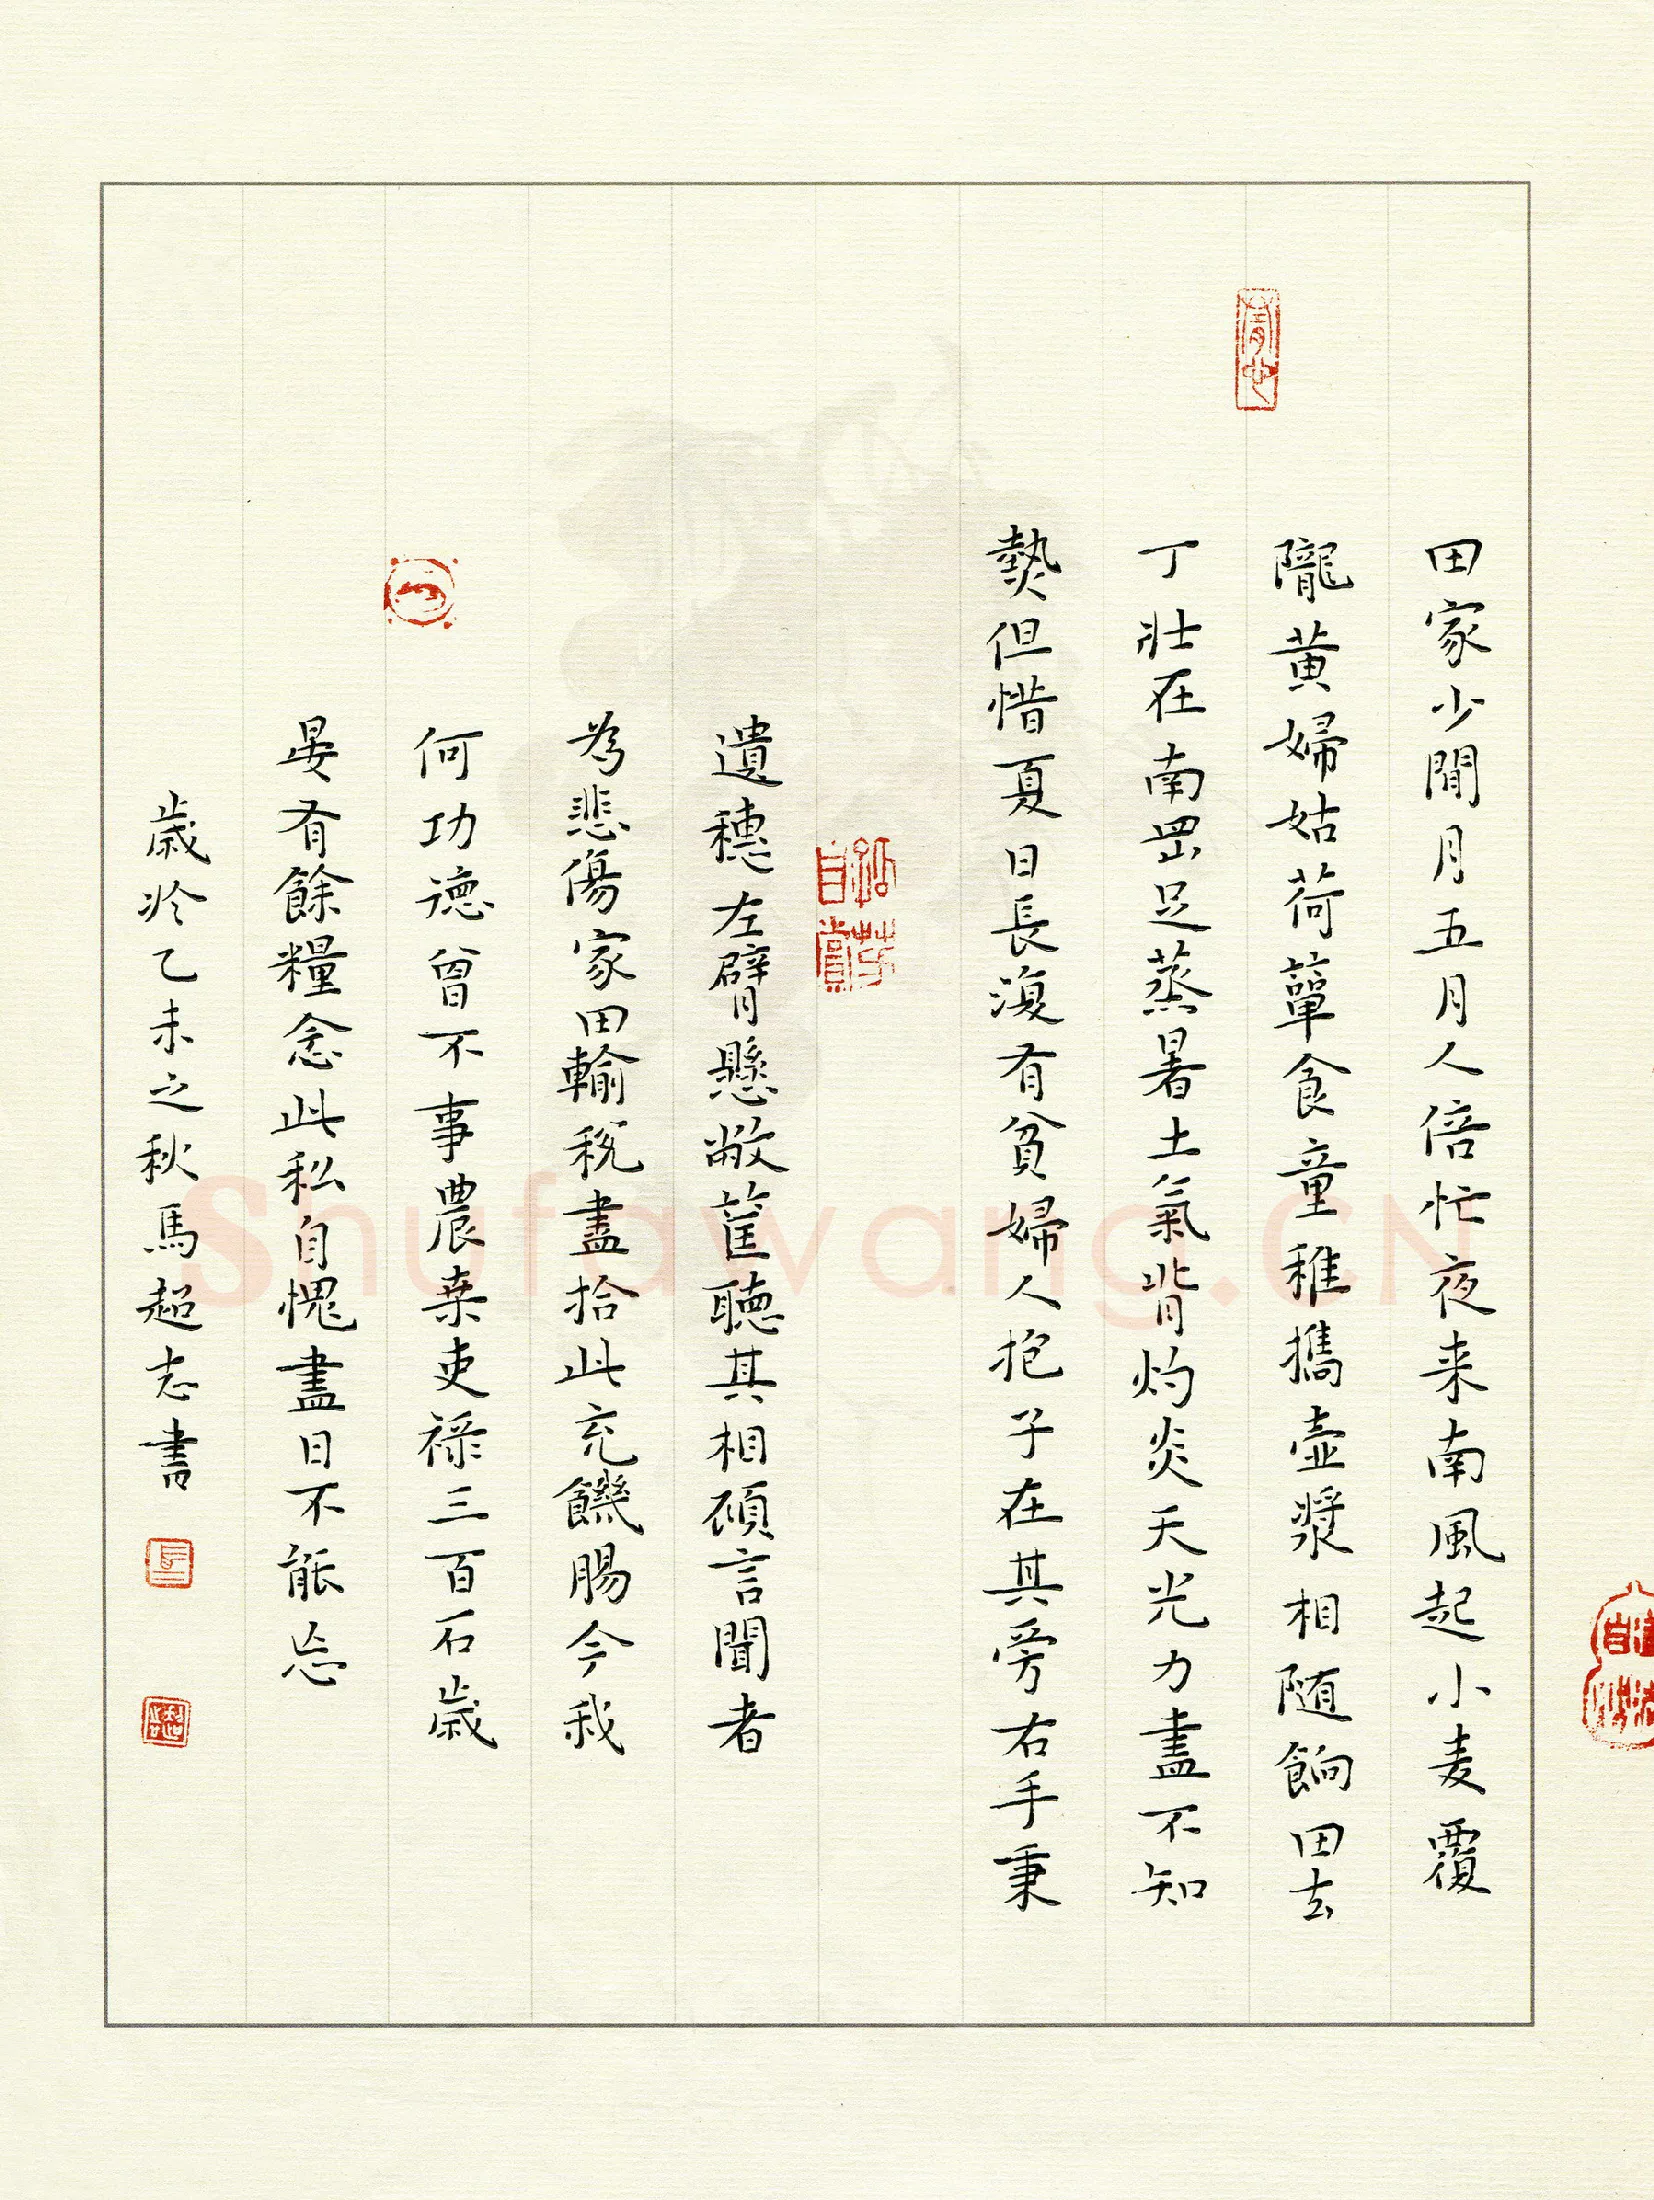 田家少閒月五月人倍忙夜来南風起小麦覆
隴黄婦姑荷簞食童稚攜壺漿相随餉田去
丁壯在南罡足蒸暑土氣背灼炎天光力盡不知
熱但惜夏日長復有貧婦人抱子在其旁右手秉
遺穗左臂懸敝筐聽其相顧言聞者
為悲傷家田輸稅盡拾此充饑腸今我
何功德曾不事農桒吏禄三百石歲
晏有餘糧念此私自愧盡日不能忘
歲於乙未之秋馬超志書
Shufawang.CN